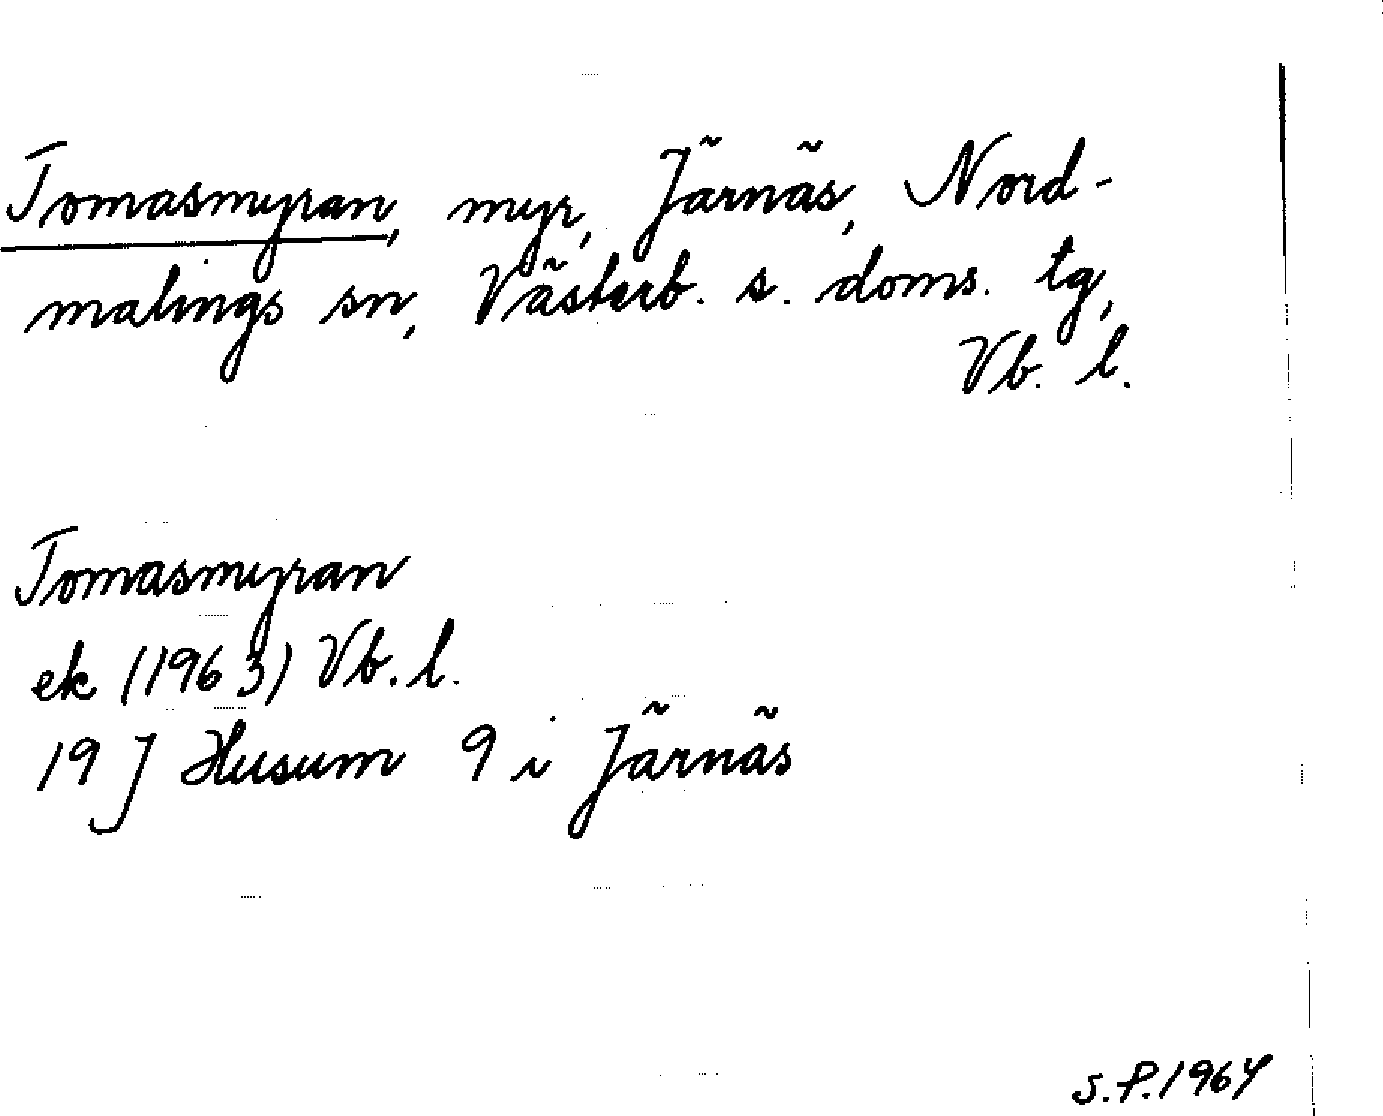 Tomasmyran, myr, Järnäs, Nord-
malings sn, Västerb. s. doms. tg,
Vb. l.
Tomasmyran
ek (1963) Vb. l.
19 J Husum 9 i Järnäs
S.P. 1964